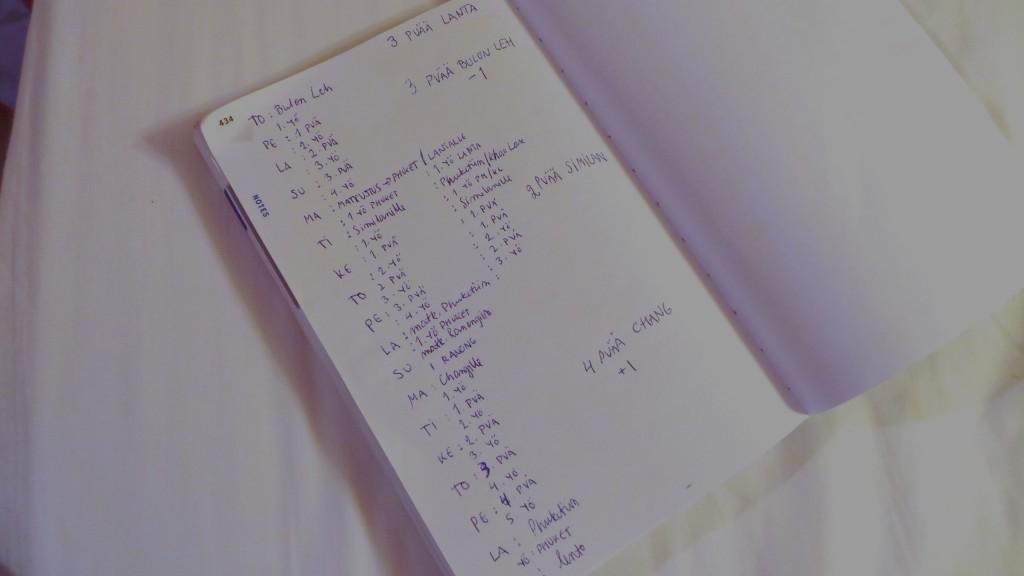 3 PVÄÄ LANTA
3 PVÄÄ BULON LEH
-1
434
NOTES
TO: Bulon Leh
1. YÖ
PE : 1 PVÄ
2. YÖ
LA : 2. PVÄ
3. YÖ
SU : 3. PVÄ
4. YÖ
MA : MATKUSTUS → PHUKET / LANTALLE
: 1. YÖ PHUKET : 1. YÖ LANTA
TI : Similanille : Phuketiin / Khao Lak
: 1. YÖ : 1. YÖ PH/KL
KE : 1. PVÄ : Similanille
: 2. YÖ : 1. PVÄ
TO : 2 PVÄ : 1. PVÄ
3. YÖ : 2. YÖ
PE : 3. PVÄ : 2. PVÄ
: 4. YÖ : 3. YÖ
LA : matk. Phuketiin :
: 1. YÖ PHUKET
SU matk
1 RANONG
MA : Changille
1. YÖ
TI : 1. PVÄ
2. YÖ
KE : 2. PVÄ
3. YÖ
TO : 3 PVÄ
4. YÖ
PE : 4 PVÄ
5 YÖ
LA : Phuketiin
YÖ : PHUKET
: lento
2 PVÄÄ SIMILAN
4 PVÄÄ CHANG
+1